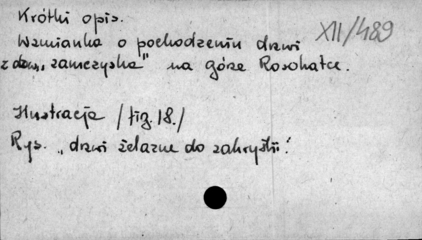 Krótki opis.
XII/489
Wzmianka o pochodzeniu drzwi
z daw. „zamczyska" na górze Rosochatce.
Ilustracja /fig. 18./
Rys. „drzwi żelazne do zakrystii."